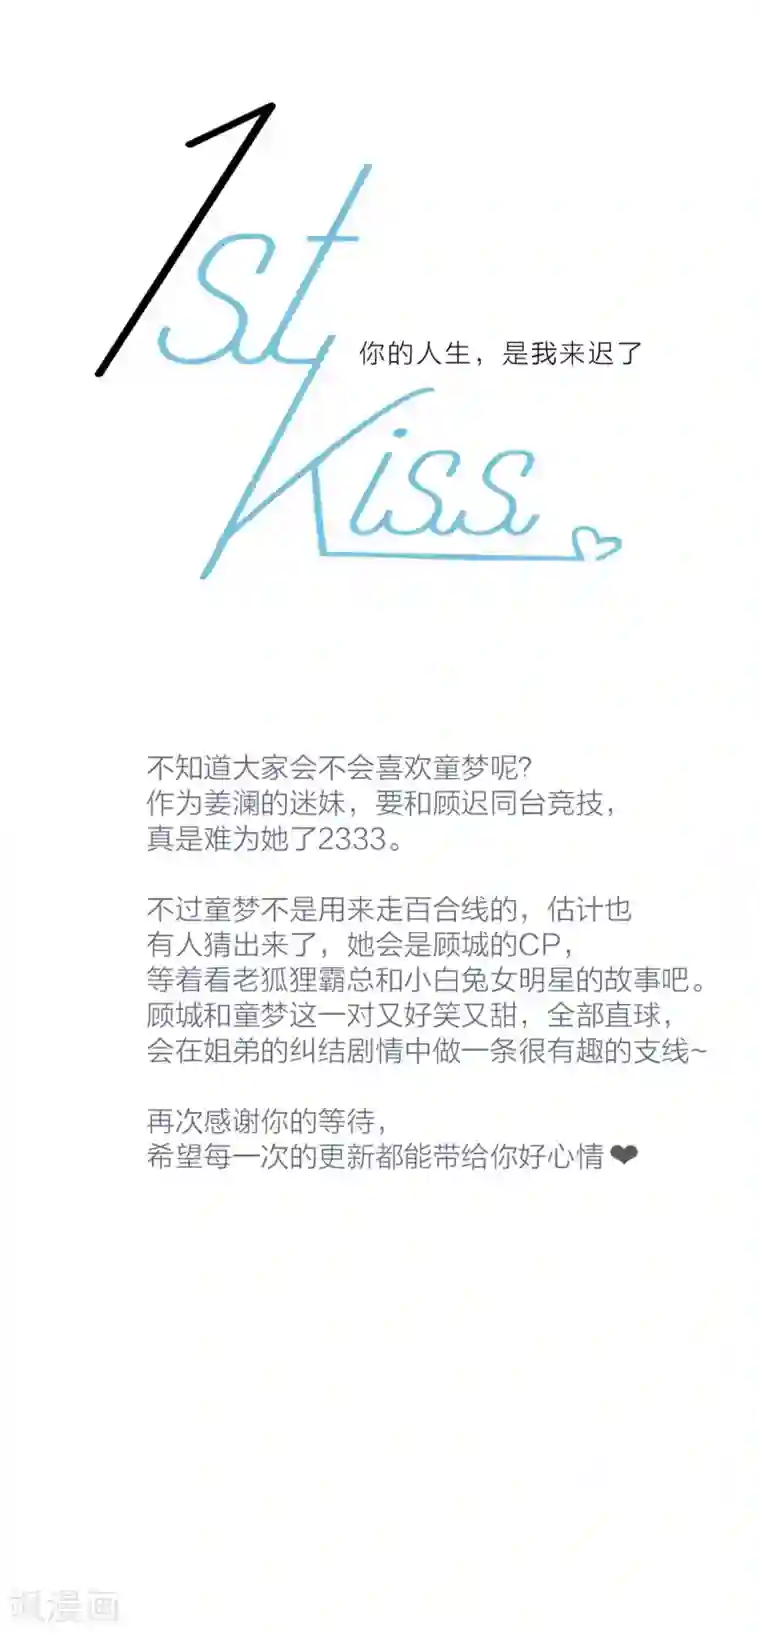 1st
你的人生，是我来迟了
Kiss
不知道大家会不会喜欢童梦呢？
作为姜澜的迷妹，要和顾迟同台竞技，
真是难为她了2333。
不过童梦不是用来走百合线的，估计也
有人猜出来了，她会是顾城的CP，
等着看老狐狸霸总和小白兔女明星的故事吧。
顾城和童梦这一对又好笑又甜，全部直球，
会在姐弟的纠结剧情中做一条很有趣的支线~
再次感谢你的等待，
希望每一次的更新都能带给你好心情❤
飒漫画